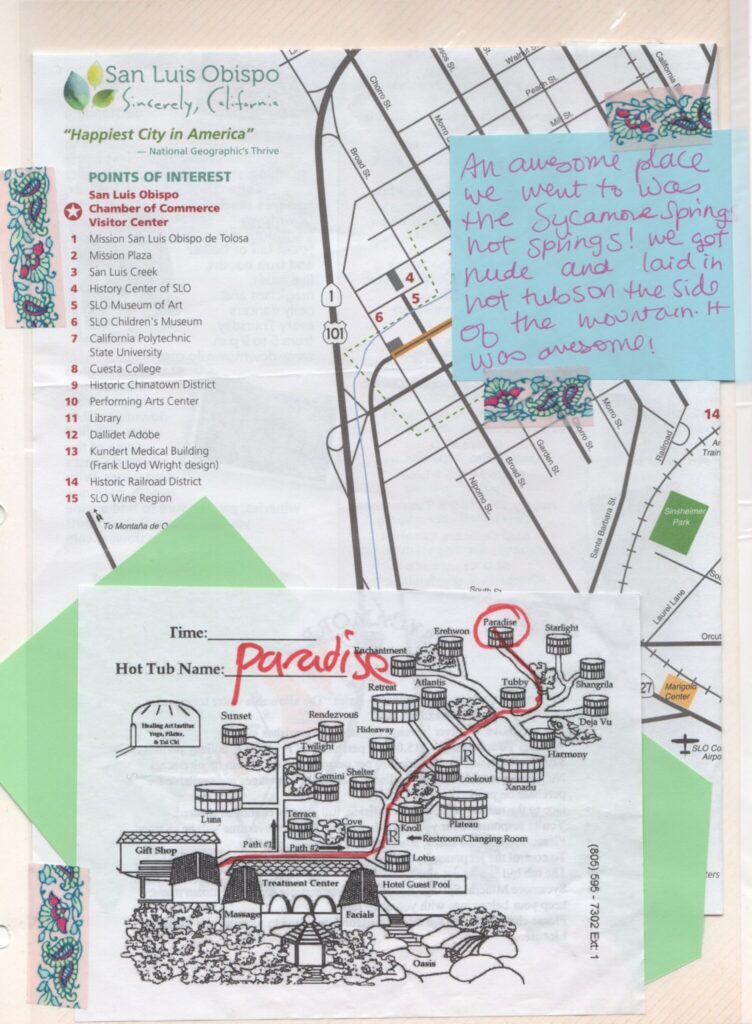 San Luis Obispo
Sincerely, California
"Happiest City in America"
— National Geographic's Thrive
POINTS OF INTEREST
San Luis Obispo
Chamber of Commerce
Visitor Center
1 Mission San Luis Obispo de Tolosa
2 Mission Plaza
3 San Luis Creek
4 History Center of SLO
5 SLO Museum of Art
6 SLO Children's Museum
7 California Polytechnic
State University
8 Cuesta College
9 Historic Chinatown District
10 Performing Arts Center
11 Library
12 Dallidet Adobe
13 Kundert Medical Building
(Frank Lloyd Wright design)
14 Historic Railroad District
15 SLO Wine Region
To Montaña de O
Chorro St.
Broad St.
Morro
sos St.
Walnut St.
Peach St.
Mill St.
California
1
101
4
5
6
An awesome place
we went to was
the Sycamore Spring
hot springs! we got
nude and laid in
hot tubs on the side
of the mountain. It
was awesome!
Morro St.
Chorro St.
Garden St.
Broad St.
Nipomo St.
Santa Barbara St.
Railroad
14
Train
Sinsheimer
Park
South St.
Laurel Lane
Orcut
27
Marigold
Center
SLO Co
Airpo
Time:
Hot Tub Name: paradise
Healing Art Institue
Yoga, Pilates,
& Tai Chi
Paradise
Erehwon
Starlight
Enchantment
Atlantis
Tubby
Shangrila
Retreat
Deja Vu
Sunset
Rendezvous
Hideaway
Harmony
Twilight
R
Gemini
Shelter
Lookout
Xanadu
Luna
Terrace
Cove
Knoll
Plateau
Path #1
Path #2
R
Restroom/Changing Room
Gift Shop
Lotus
Treatment Center
Hotel Guest Pool
Massage
Facials
Oasis
(805) 595 - 7302 Ext: 1